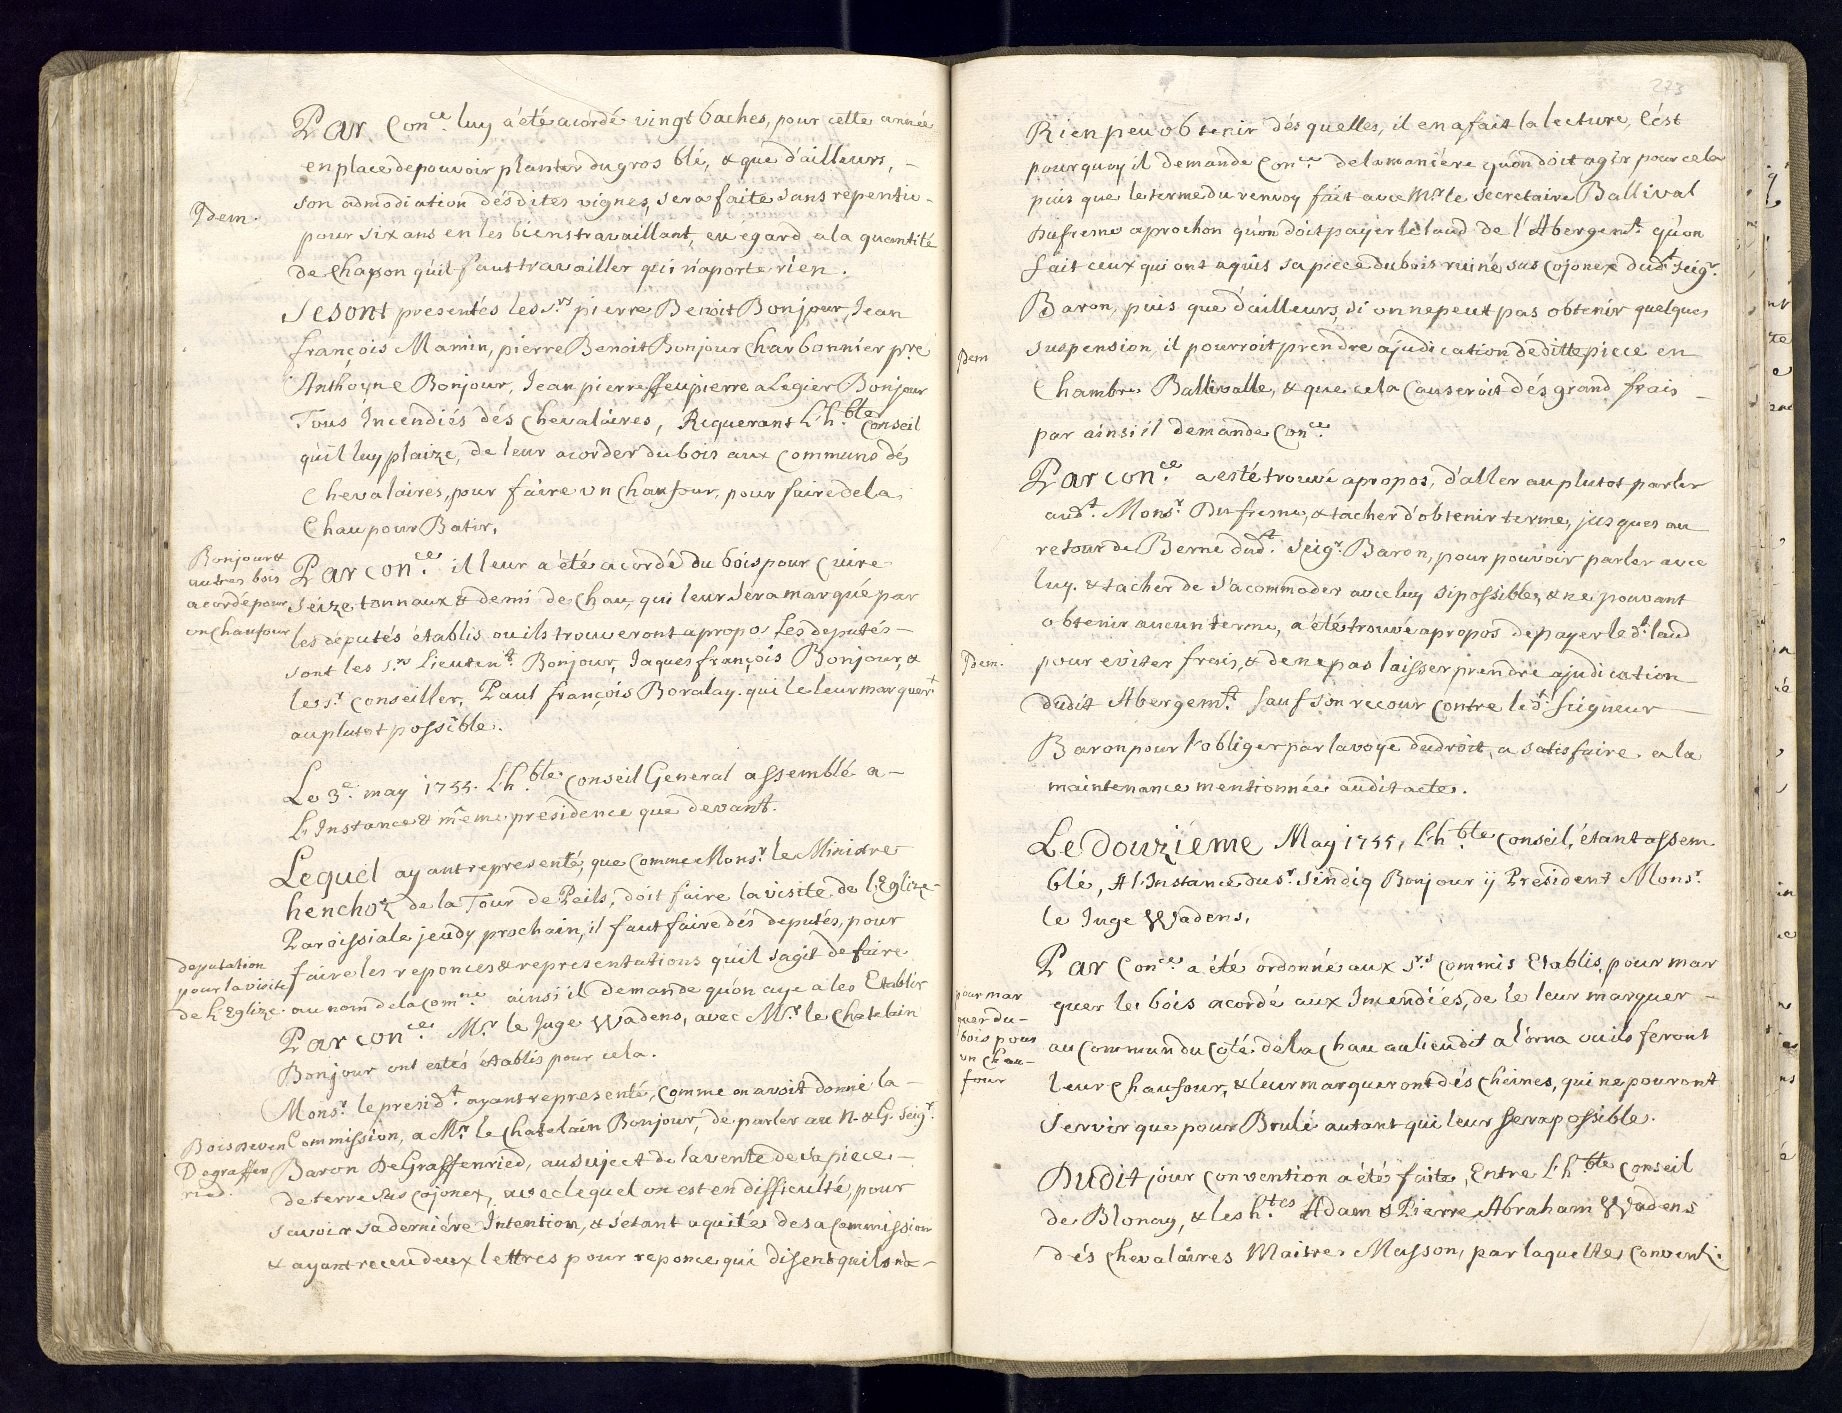 Par Con.ce luy a été acordé vingt baches, pour cette année
en place de pouvoir planter du gros blé, & que d'ailleurs, -
Idem.
son admodiation désdites vignes, sera faite sans repentir -
pour six ans en les bienstravaillant, eu egard a la quantité
de Chapon qûil faut travailler qui n'aporte rien.
Se sont presentés les S.rs pierre Benoit Bonjour, Jean
françois Mamin, pierre Benoit Bonjour Charbonnier pre
Anthoyne Bonjour, Jean pierre ffeu pierre a Legier Bonjour
Tous Incendiés dés Chevalaires, Requerant L'h.ble Conseil
qûil luy plaize, de leur acorder du bois aux Communs dés
Chevalaires, pour faire vn Chaufour, pour faire de la
Chau pour Batir.
Bonjour &
autres bois
acordé pour
vn chaufour
Par con.ce il leur a été acordé du bois pour Cuire
Seize tonnaux & demi de Chau, qui leur sera marqué par
les députés établis ou ils trouveront apropos Les deputés -
sont les s.rs Lieuten.t Bonjour, Jaques françois Bonjour, &
le s.r Conseiller, Paul françois Boralay. qui le leur marquer.t
au plutot possible.
Le 3.e may 1755. L'h.ble Conseil General assemblé a -
L'Instance & même presidence que devant.
Lequel ayant representé, que comme Mons.r le Ministre
henchoz de la Tour de Peils, doit faire la visite de l'Eglize -
Paroissiale jeudy prochain, il faut faire dés deputés, pour
deputation
pour la visite
de l'Eglize.
faire les reponces & representations qûil sagit de faire
au nom de la Com.ne ainsi il demande qûon aye a les Etablir
Par con.ce M.r le Juge Wadens, avec M.r le Chatelain
Bonjour ont estés établis pour cela.
Mons.r le presid.t ayant representé, Comme on avoit donné la -
Bois
Degraffen
ried.
Commission, a M.r le Chatelain Bonjour, de parler au N. & G. Seig.r
Baron DeGraffenried, au sujet de la vente de sa piece -
de terre sus Cojonex, avec lequel on est en difficulté, pour
savoir sa derniére Intention, & s'étant aquité de sa Commission
& ayant receu deux lettres pour reponce qui disent quils na -
223
Rien peu obtenir dés quelles, il en a fait la lecture, C'ést
pourquoy il demande Con.ce de la maniére quon doit agir pour cela
puis que le terme du renvoy fait avec M.r le Secretaire Ballival
Dufresne aprochon qûon doit payer le laud de l'Abergem.t qûon
fait ceux qui ont aquis sa piece du bois ruiné sus Cojonex dud.t seig.r
Baron, puis que d'ailleurs, si on ne peut pas obtenir quelques
Idem
suspension, il pourroit prendre ajudication de ditte piece en
Chambre Ballivalle, & que cela Causeroit dés grand frais -
par ainsi il demande Con.ce
Par con.ce a esté trouvé apropos, d'aller au plutot parler
aud.t Mons.r Dufresne, & tacher d'obtenir terme, jusques au
retour de Berne dud.t Seig.r Baron, pour pouvoir parler avec
luy. & tacher de s'acommoder avec luy si possible, & ne pouvant
obtenir aucun terme, a été trouvé apropos de payer le d.t laud
Idem.
pour eviter frais, & de ne pas laisser prendre ajudication
dudit Abergem.t sauf son recour contre le d.t Seigneur
Baron pour l'obliger par la voye du droit, a satisfaire a la
maintenance mentionnée audit acte.
Le Douziéme May 1755, L'h.ble Conseil, étant assem
blé, A l'Instance du s.r Sindiq Bonjour ij President Mons.r
le Juge Wadens.
Par Con.ce a été ordonné aux S.rs Commis Etablis, pour mar
pour mar
quer du -
bois pour
vn chau-
four
quer le bois acordé aux Incendiés, de le leur marquer -
au Commun du Coté de la Chau au lieu dit a l'orna ou ils feront
leur Chaufour, & leur marqueront dés Cheines, qui ne pouront
servir que pour Brulé autant qui leur serra possible.
Dudit jour Convention a été faite, Entre L'h.ble Conseil
de Blonay, & les h.tes Adam & Pierre Abraham Wadens
dés Chevalaires Maitre Masson, par laquelle Conventi.